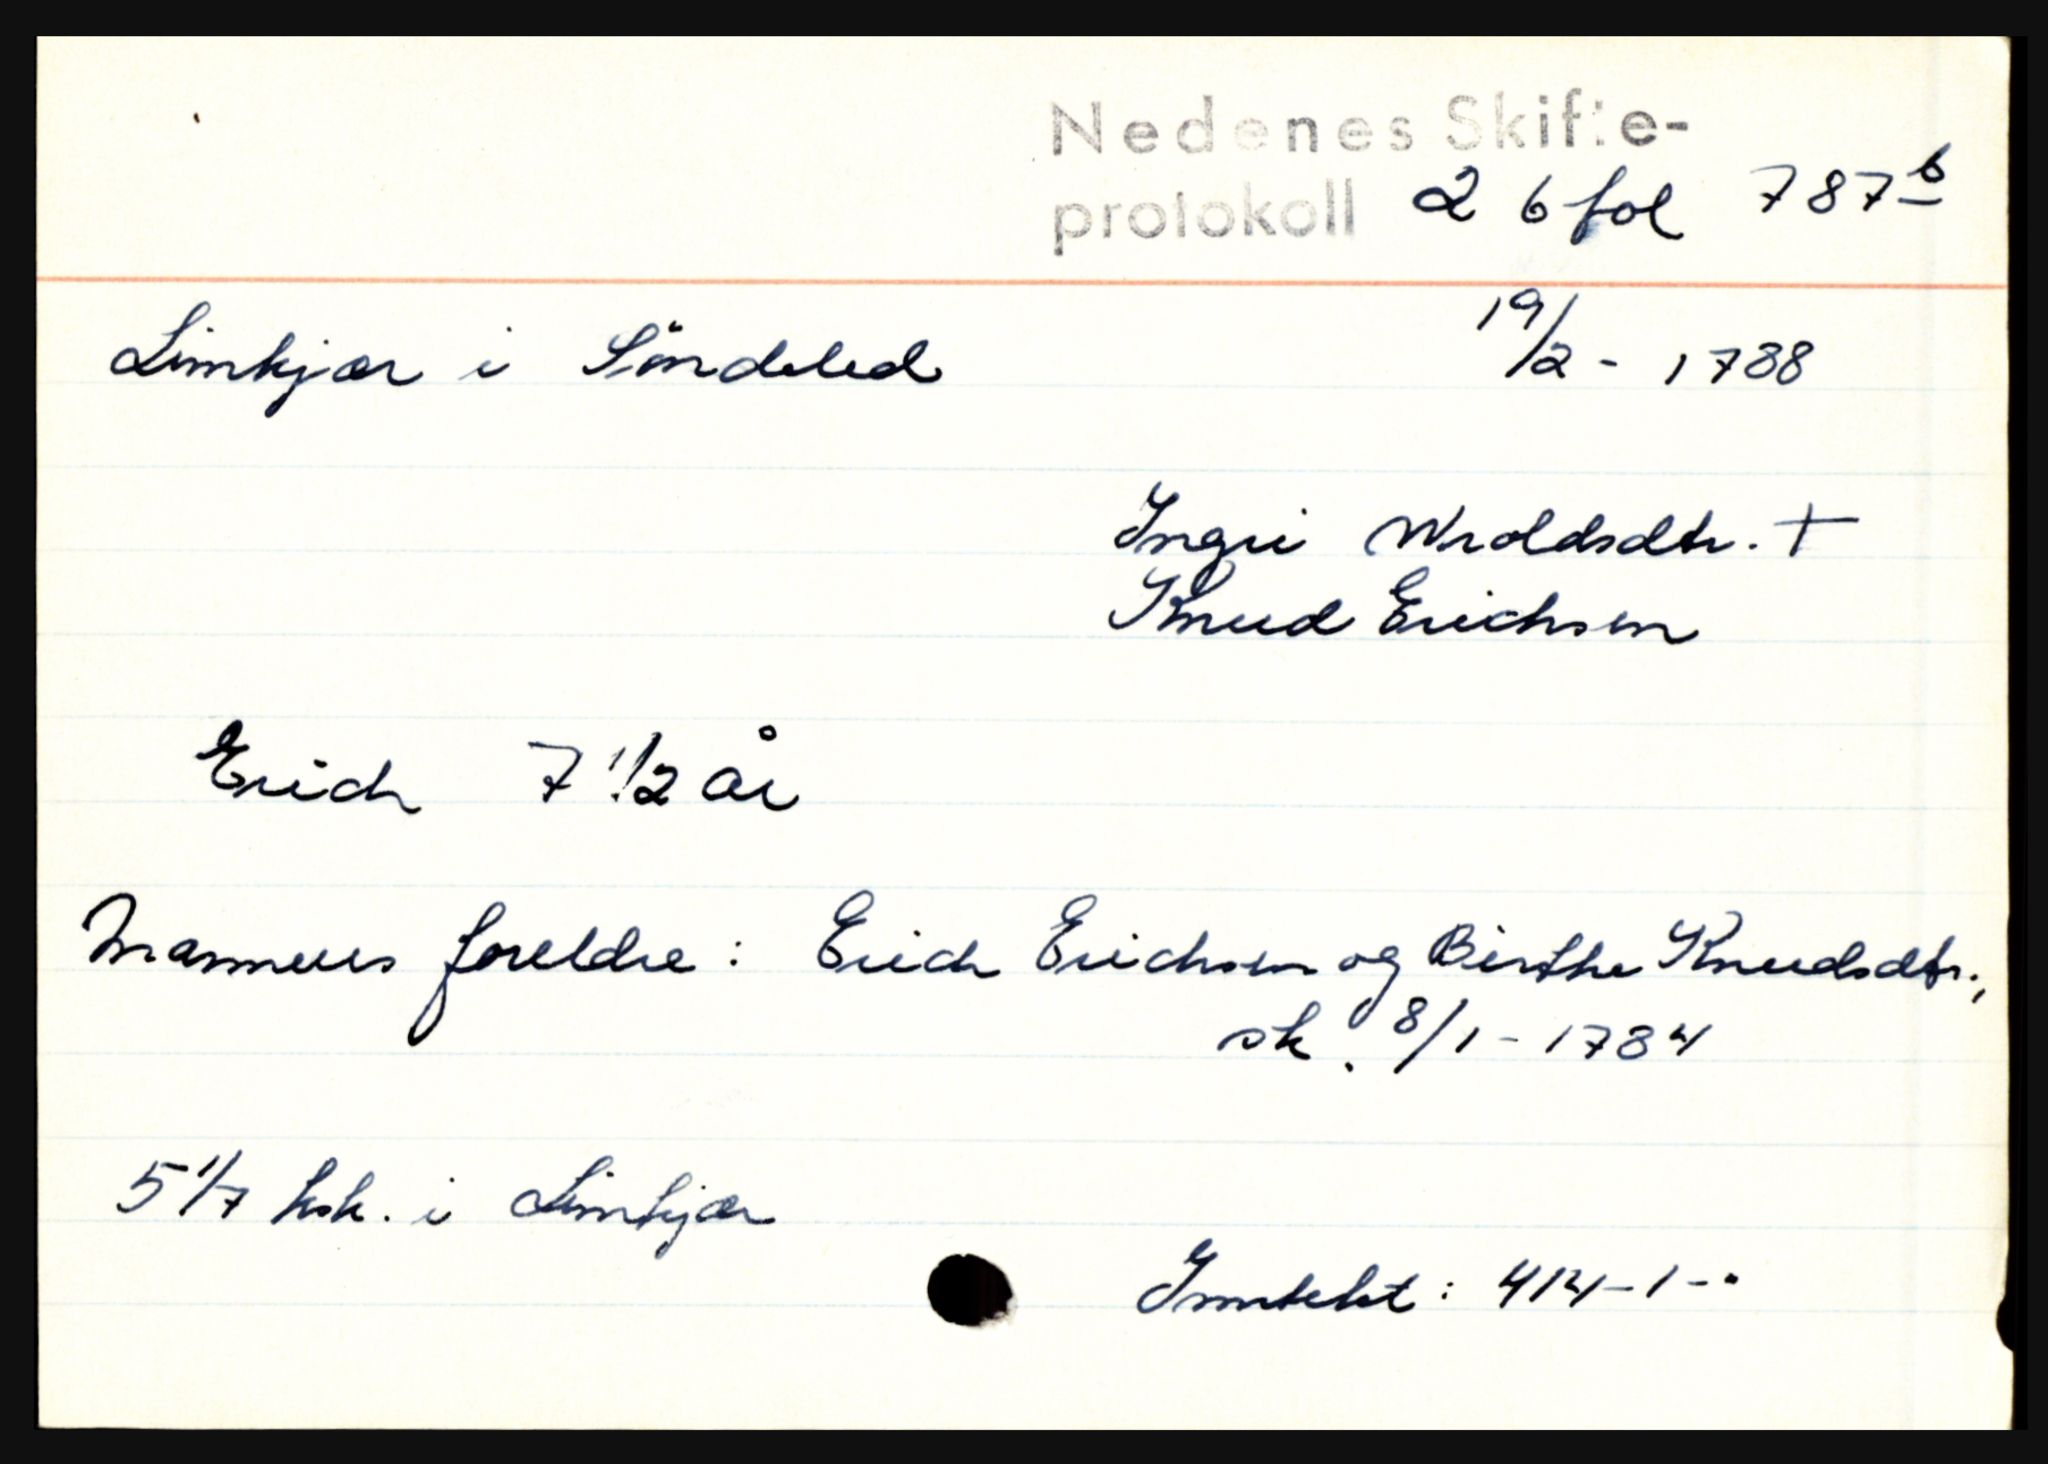 Nedenes Skifte-
protokoll 26 fol 787 b
Limkjær i Söndeled 19/2 - 1788
Ingri Wroldsdtr. +
Knud Erichsen
Erich 7 1/2 år
Mannens foreldre : Erich Erichsen og Birthe Knudsdtr.,
sk. 8/1 - 1784
5 1/7 ksk. i Limkjær
Inntekt : 414 - 1 - "